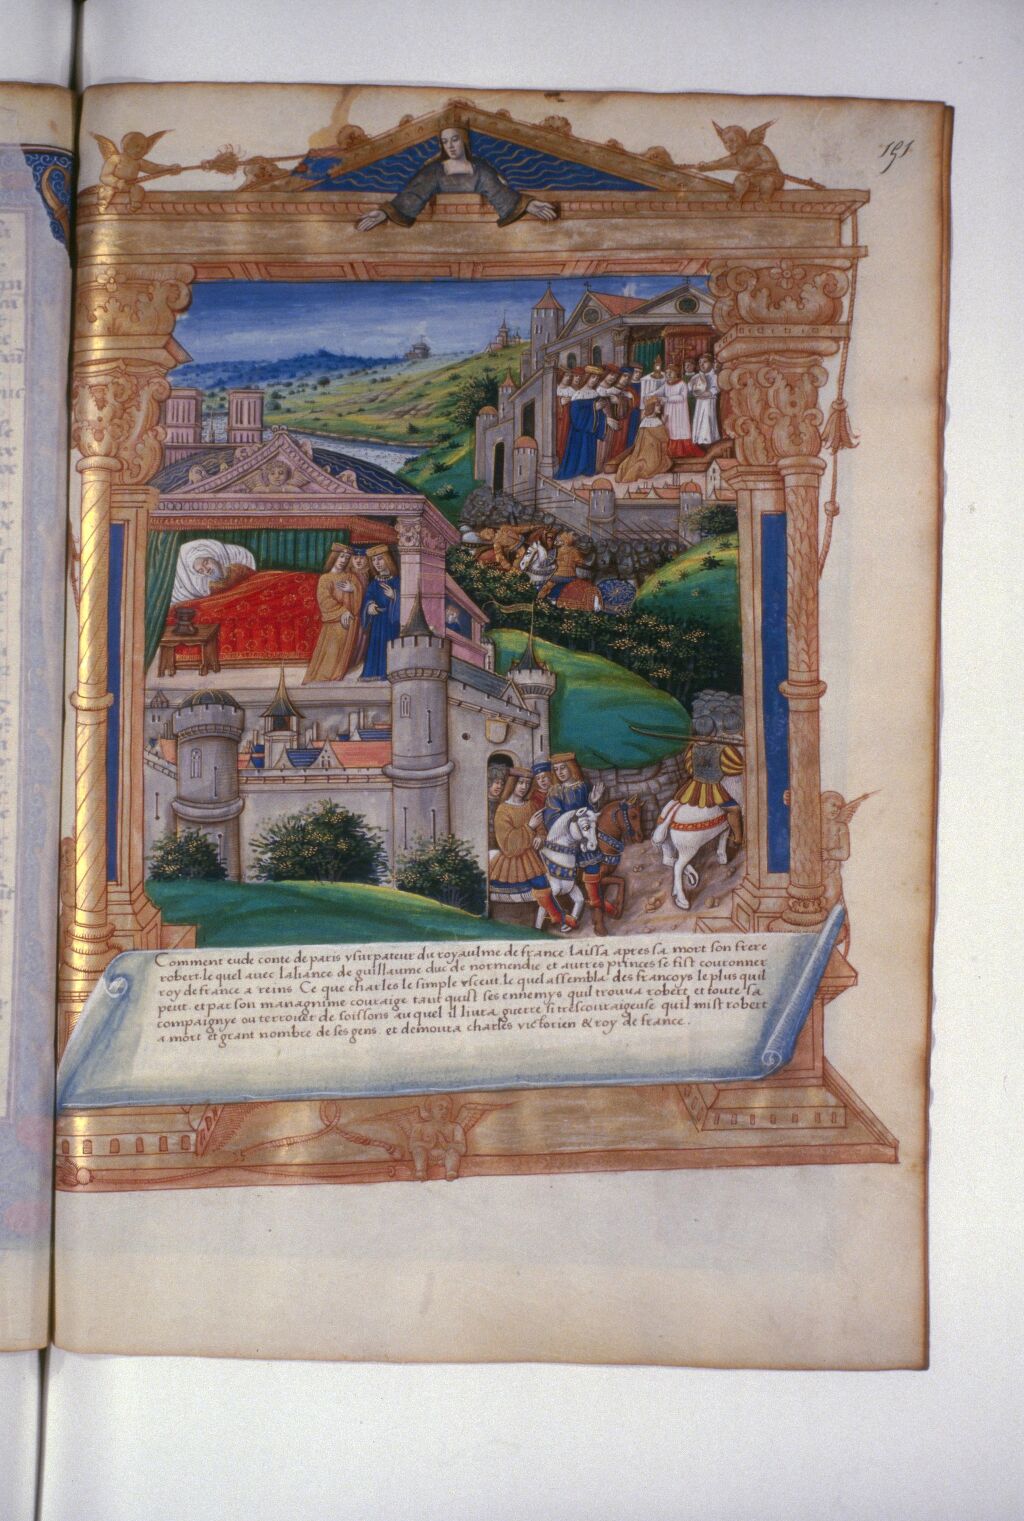 151
Comment eude conte de paris vsurpateur du royaulme de france laissa apres sa mort son frere
robert. le quel auec laliance de guillaume duc de normendie et autres princes se fist couronner
roy de france a reins. Ce que charles le simple
le quel assembla des francoys le plus quil
peut. et par son magnanime couraige tant quist ses ennemys quil trouua robert et toute sa
compaignye ou terrouer de soissons au quel il liura guerre si trescouraigeuse quil mist robert
a mort et grant nombre de ses gens. et demoura charles victorien & roy de france.